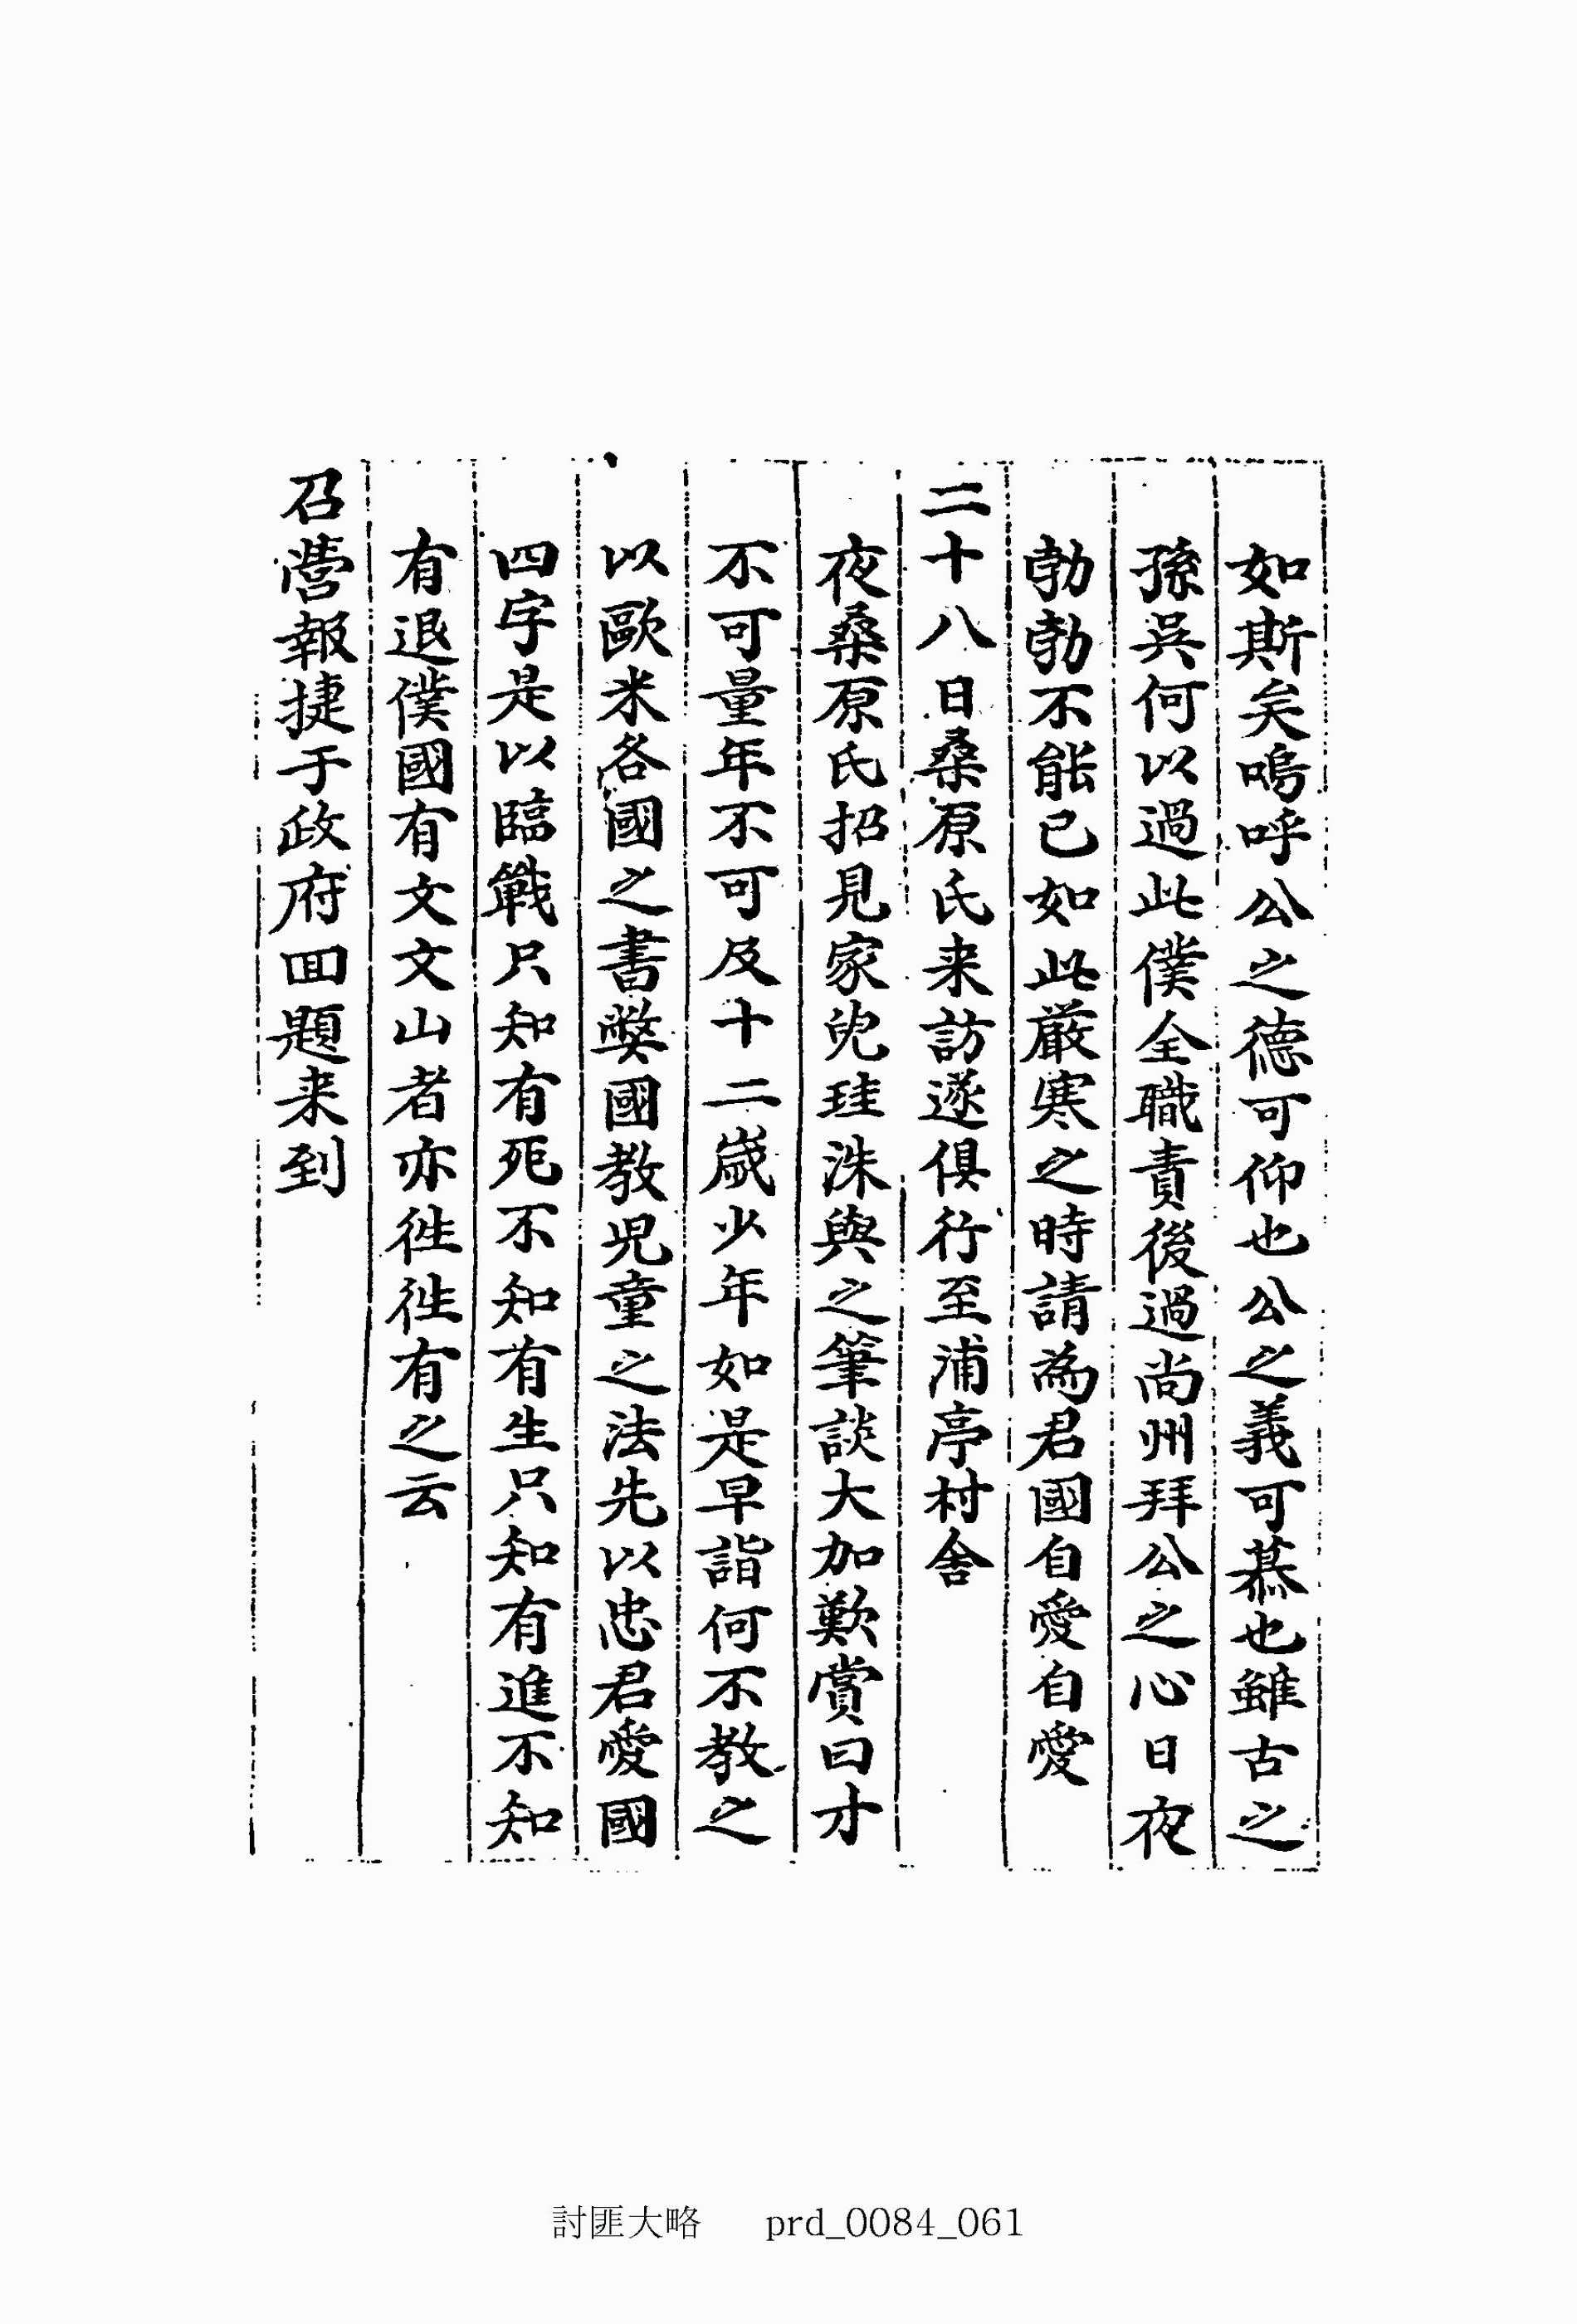 如斯矣嗚呼公之德可仰也公之義可慕也雖古之
孫吳何以過此僕全職責後過尚州拜公之心日夜
勃勃不能已如此嚴寒之時請為君國自愛自愛
二十八日桑原氏来訪遂俱行至浦亭村舍
夜桑原氏招見家兒珪洙與之筆談大加歎賞曰才
不可量年不可及十二歲少年如是早詣何不教之
以歐米各國之書弊國教児童之法先以忠君愛國
四字是以臨戰只知有死不知有生只知有進不知
有退僕國有文文山者亦徃徃有之云
召營報捷于政府回題来到
討匪大略 prd_0084_061